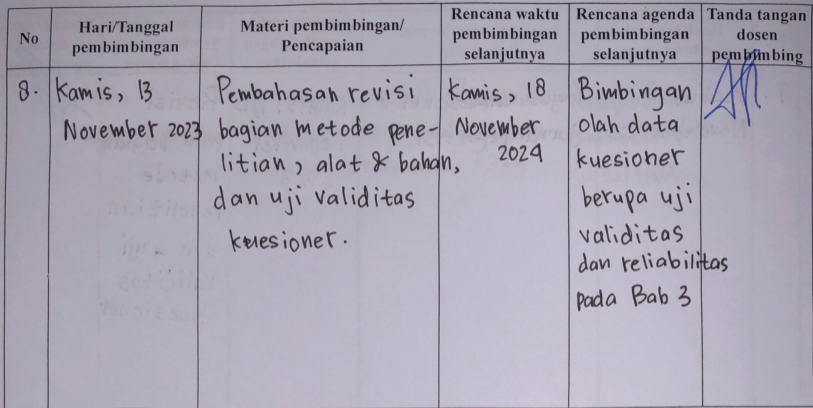 No
Hari/Tanggal
pembimbingan
Materi pembimbingan/
Pencapaian
Rencana waktu
pembimbingan
selanjutnya
Rencana agenda
pembimbingan
selanjutnya
Tanda tangan
dosen
pembimbing
8.
Kamis, 13
November 2023
Pembahasan revisi
bagian metode pene-
litian, alat & bahan,
dan uji validitas
kuesioner.
Kamis, 18
November
2024
Bimbingan
olah data
kuesioner
berupa uji
validitas
dan reliabilitas
pada Bab 3